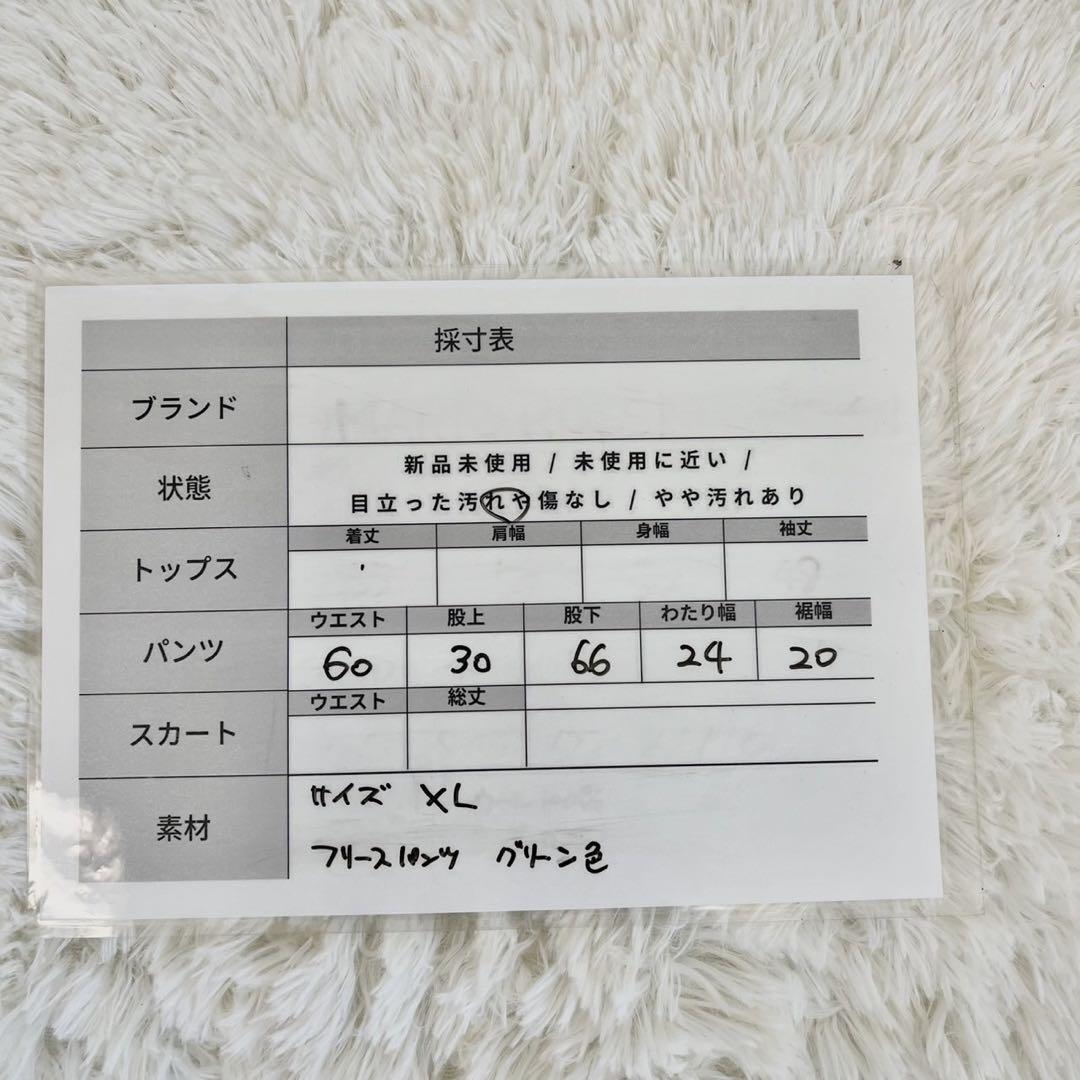 採寸表
ブランド
状態
新品未使用 / 未使用に近い /
目立った汚れや傷なし / やや汚れあり
トップス
着丈 肩幅 身幅 袖丈
パンツ
ウエスト 股上 股下 わたり幅 裾幅
60 30 66 24 20
スカート
ウエスト 総丈
素材
サイズ XL
フリースパンツ グリーン色